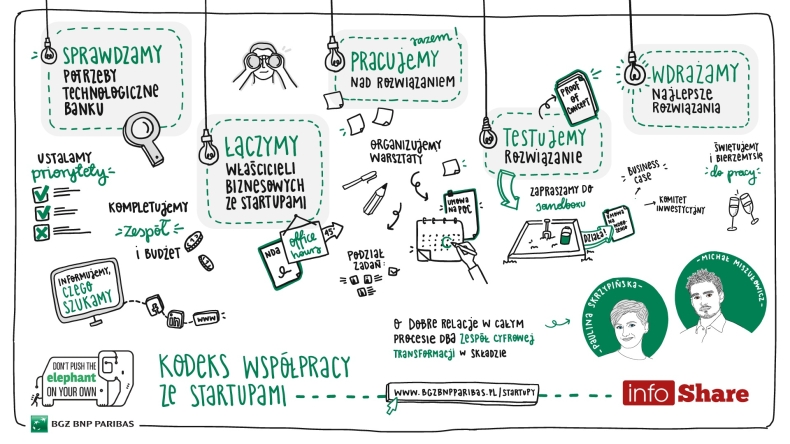 SPRAWDZAMY
POTRZEBY
TECHNOLOGICZNE
BANKU
USTALAMY
priorytety
KOMPLETUJEMY
zespół
i BUDŻET
INFORMUJEMY,
CZEGO
SZUKAMY
in
WWW
ŁĄCZYMY
WŁAŚCICIELI
BIZNESOWYCH
ZE STARTUPAMI
NDA
office
hours
45'
razem!
PRACUJEMY
NAD ROZWIĄZANIEM
ORGANIZUJEMY
WARSZTATY
UMOWA
NA POC
PODZIAŁ
ZADAŃ:
TESTUJEMY
ROZWIĄZANIE
PROOF
OF
CONCEPT
ZAPRASZAMY DO
sandboxu
DZIAŁA!
UMOWA
NA
WDROŻENIE
WDRAŻAMY
NAJLEPSZE
ROZWIĄZANIA
BUSINESS
CASE
KOMITET
INWESTYCYJNY
ŚWIĘTUJEMY
i BIERZEMY SIĘ
do pracy
O DOBRE RELACJE W CAŁYM
PROCESIE DBA ZESPÓŁ CYFROWEJ
TRANSFORMACJI W SKŁADZIE
-PAULINA SKRZYPIŃSKA-
-MICHAŁ MISZUŁOWICZ-
DON'T PUSH THE
elephant
ON YOUR OWN
KODEKS WSPÓŁPRACY
ZE STARTUPAMI
WWW.BGZBNPPARIBAS.PL/STARTUPY
info Share
BGZ BNP PARIBAS